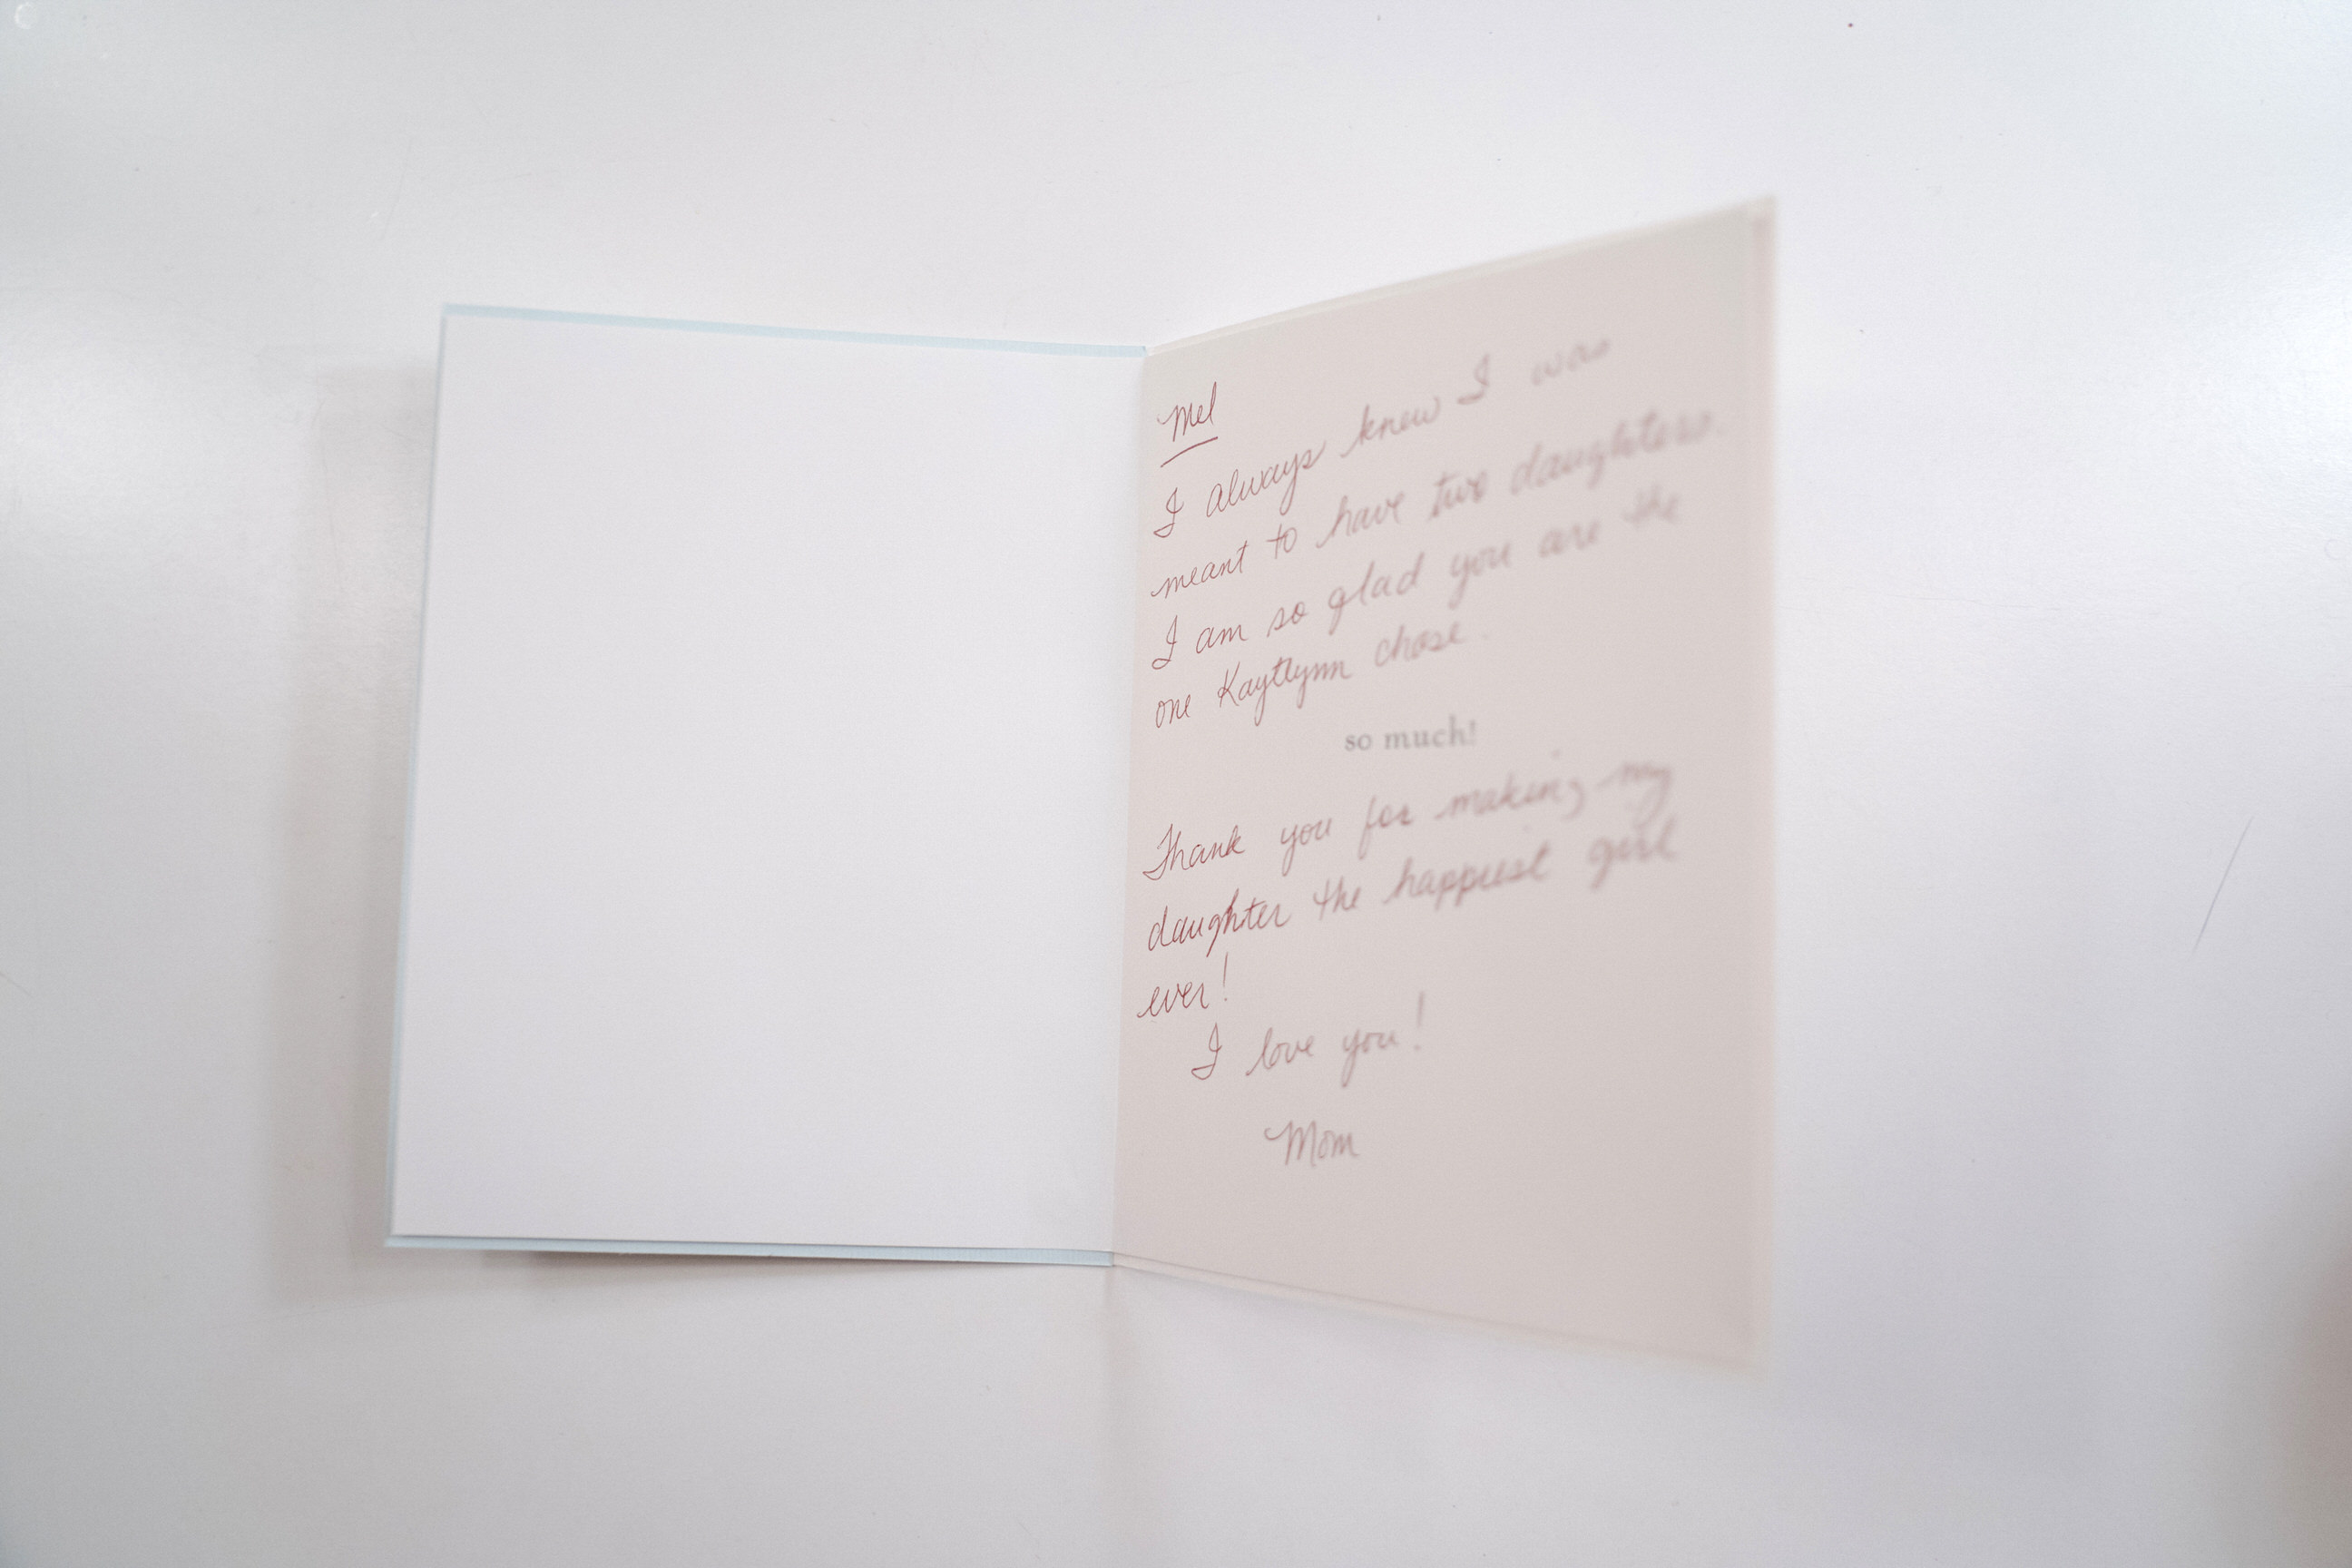 Mel
I always knew I was
meant to have two daughters.
I am so glad you are the
one Kaytlynn chose.
so much!
Thank you for making my
daughter the happiest girl
ever!
I love you!
Mom